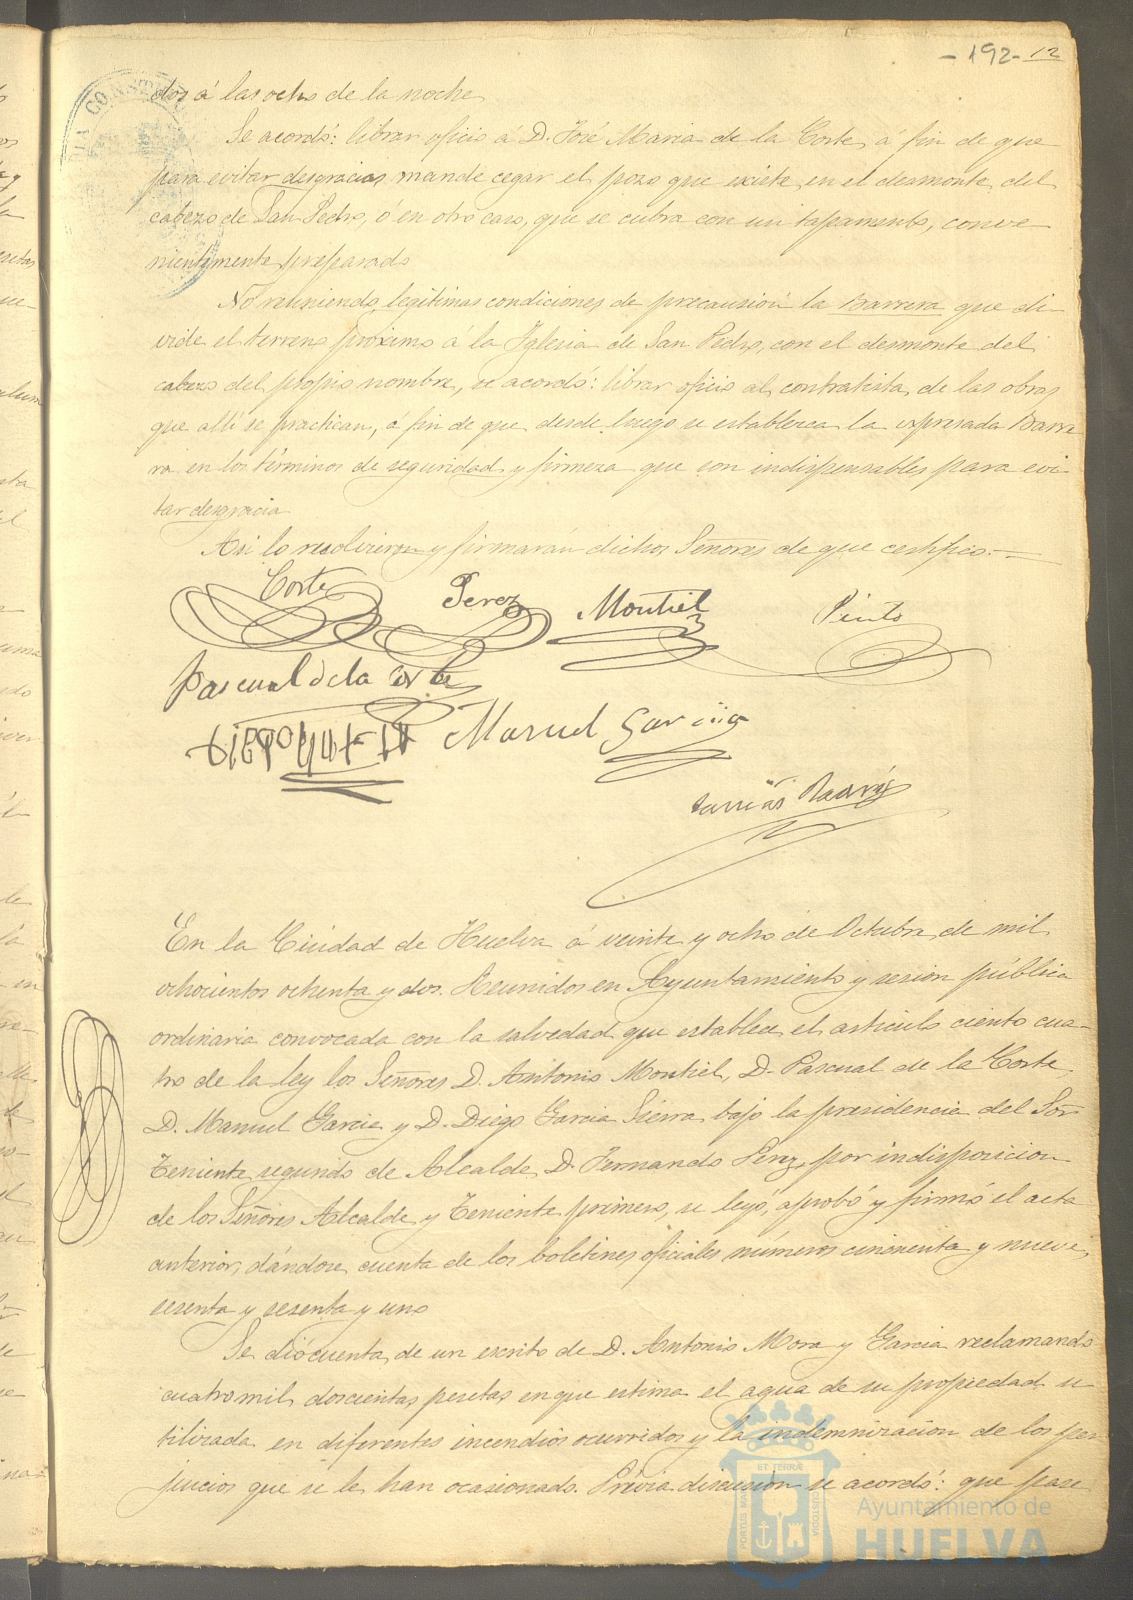 -192- 12
dos á las ocho de la noche
Se acordó: librar oficio á D. José Maria de la Corte, á fin de que
para evitar desgracias mande cegar el pozo que existe en el desmonte del
cabezo de San Pedro, ó en otro caso, que se cubra con un tapamento, conve
nientemente preparado
No reuniendo legítimas condiciones de precausión la Barrera que di-
vide el terreno próximo á la Iglesia de San Pedro, con el desmonte del
cabezo del propio nombre, se acordó: librar oficio al contratista de las obras
que allí se practican, á fin de que desde luego se establezca la expresada Barre
ra en los términos de seguridad y firmeza que son indispensables para evi
tar desgracia
Asi lo resolvieron y firmarán dichos Señores de que certifico.—
Corte Perez Montiel Pinto
Pascual de la Corte
Manuel Garcia
En la Ciudad de Huelva á veinte y ocho de Octubre de mil
ochocientos ochenta y dos. Reunidos en Ayuntamiento y sesión pública
ordinaria convocada con la salvedad que establece el artículo ciento cua-
tro de la ley los Señores D. Antonio Montiel, D. Pascual de la Corte,
D. Manuel Garcia y D. Diego Garcia Sierra bajo la presidencia del Sor
Teniente segundo de Alcalde D. Fernando Perez, por indisposicion
de los Señores Alcalde y Teniente primero, se leyó, aprobó y firmó el acta
anterior, dándose cuenta de los boletines oficiales números cincuenta y nueve,
sesenta y sesenta y uno
Se dió cuenta de un escrito de D. Antonio Mora y Garcia reclamando
cuatro mil doscientas pesetas en que estima el agua de su propiedad u-
tilizada en diferentes incendios ocurridos y la indemnización de los per
juicios que se le han ocasionado. Prévia discusión se acordó: que pase
PORTUS MARIS ET TERRE CUSTODIA
Ayuntamiento de
HUELVA